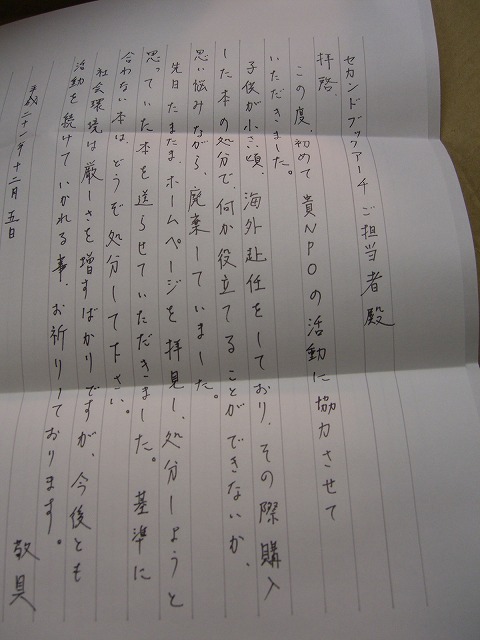 セカンドブックアーチ ご担当者殿
拝啓、
この度、初めて貴NPOの活動に協力させて
いただきました。
子供が小さい頃、海外赴任をしており、その際購入
した本の処分で、何か役立てることができないか、
思い悩みながら、廃棄していました。
先日たまたまホームページを拝見し、処分しようと
思っていた本を送らせていただきました。基準に
合わない本は、どうぞ処分して下さい。
社会環境は厳しさを増すばかりですが、今後とも
活動を続けていかれる事、お祈りしております。
敬具
平成二十一年十二月五日